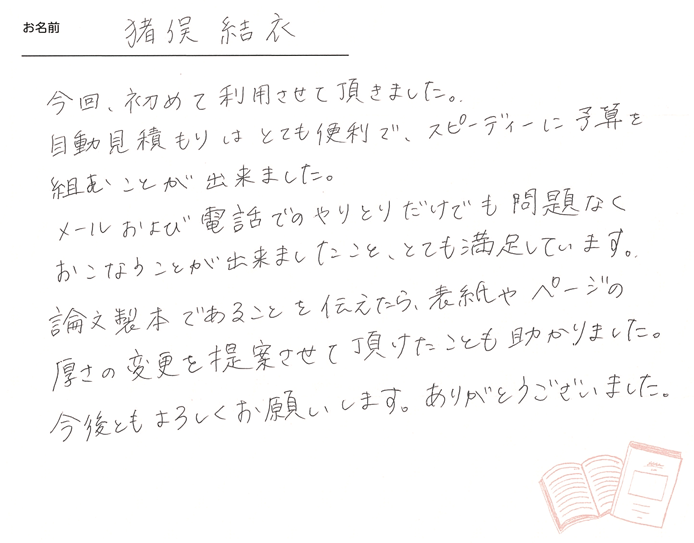 お名前 猪俣 結衣
今回、初めて利用させて頂きました。
自動見積もりはとても便利で、スピーディーに予算を
組むことが出来ました。
メールおよび電話でのやりとりだけでも問題なく
おこなうことが出来ましたこと、とても満足しています。
論文製本であることを伝えたら、表紙やページの
厚さの変更を提案させて頂けたことも助かりました。
今後ともよろしくお願いします。ありがとうございました。